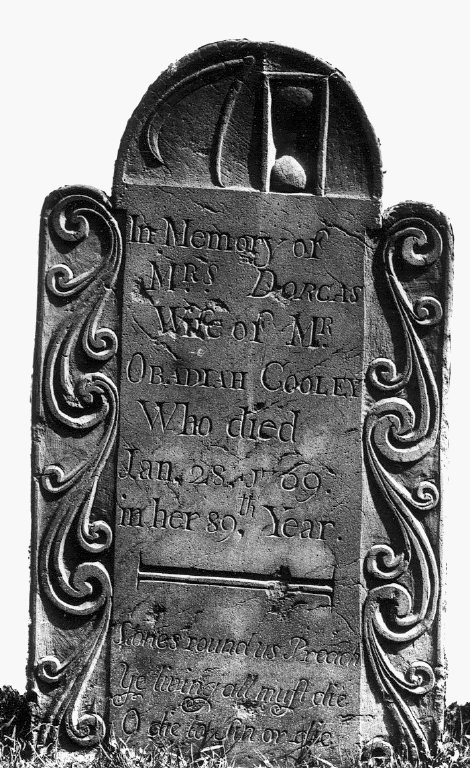 In Memory of
MRS DORCAS
Wife of MR
OBADIAH COOLEY
Who died
Jan. 28. 69.
in her 89th. Year.
round us Preach
Ye living all muſt die
O die to ſin or die